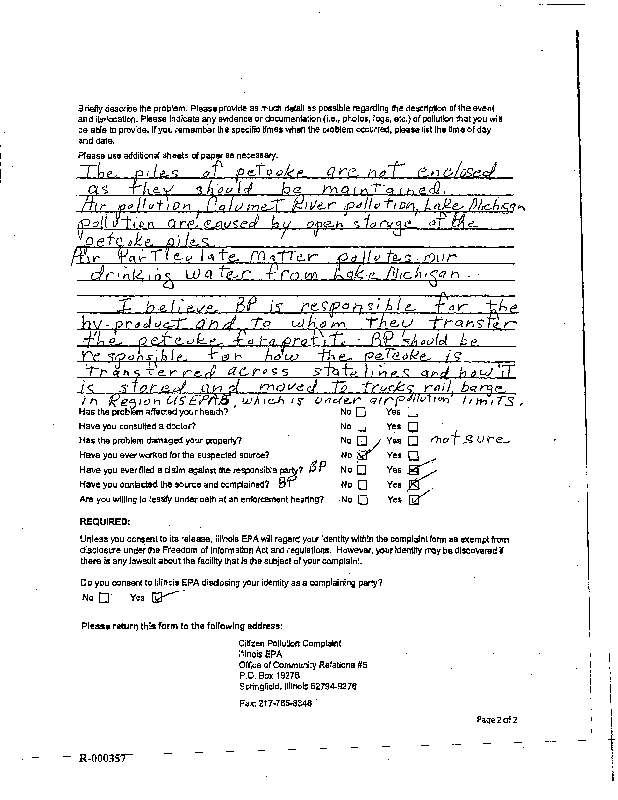 Briefly describe the problem. Please provide as much detail as possible regarding the description of the event
and its location. Please indicate any evidence or documentation (i.e., photos, logs, etc.) of pollution that you will
be able to provide. If you remember the specific times when the problem occurred, please list the time of day
and date.
Please use additional sheets of paper as necessary.
The piles of petcoke are not enclosed
as they should be maintained.
Air pollution, Calumet River pollution, Lake Michigan
pollution are caused by open storage of the
petcoke piles.
Air Particulate Matter pollutes our
drinking water from Lake Michigan.
I believe BP is responsible for the
by-product and to whom they transfer
the petcoke for aprofit. BP should be
responsible for how the petcoke is
transferred across state lines and how it
is stored and moved to trucks, rail, barge
in Region USEPA5, which is under air pollution limits.
Has the problem affected your health? No Yes
Have you consulted a doctor? No Yes
Has the problem damaged your property? No Yes not sure
Have you ever worked for the suspected source? No Yes
Have you ever filed a claim against the responsible party? BP No Yes
Have you contacted the source and complained? BP No Yes
Are you willing to testify under oath at an enforcement hearing? No Yes
REQUIRED:
Unless you consent to its release, Illinois EPA will regard your identity within the complaint form as exempt from
disclosure under the Freedom of Information Act and regulations. However, your identity may be discovered if
there is any lawsuit about the facility that is the subject of your complaint.
Do you consent to Illinois EPA disclosing your identity as a complaining party?
No Yes
Please return this form to the following address:
Citizen Pollution Complaint
Illinois EPA
Office of Community Relations #5
P.O. Box 19276
Springfield, Illinois 62794-9276
Fax: 217-785-8346
Page 2 of 2
R-000357